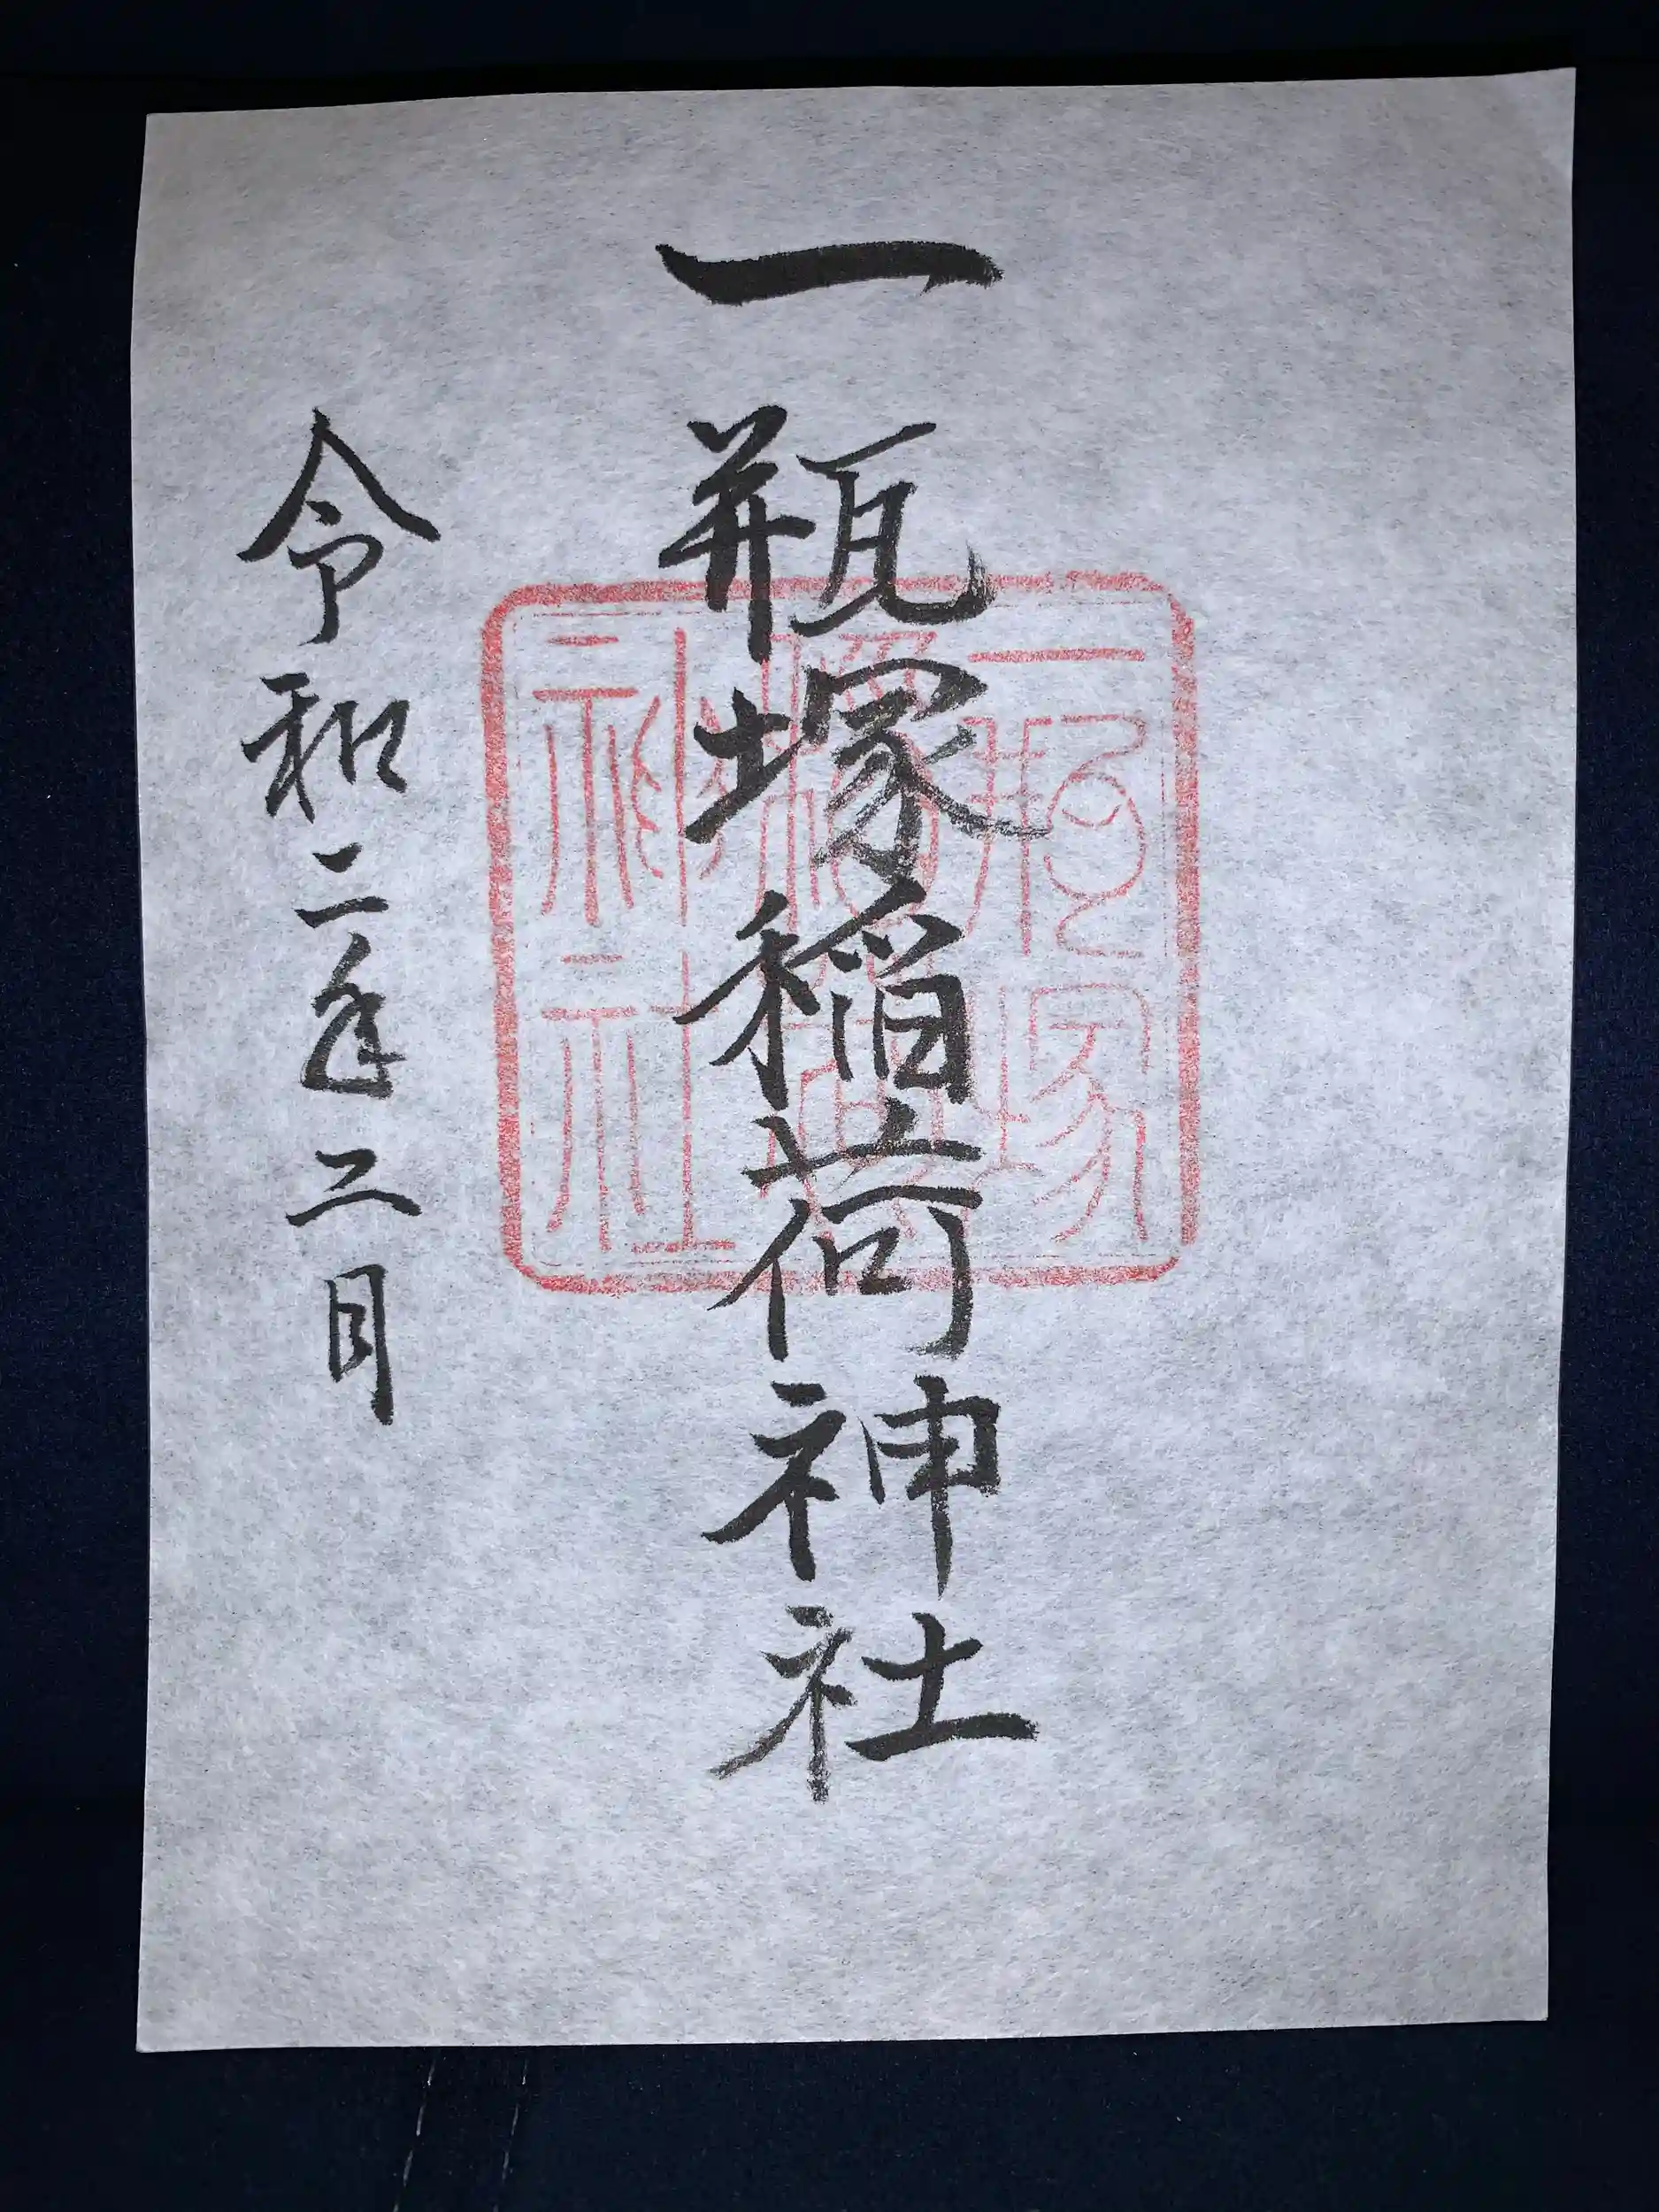 一瓶塚稲荷神社
令和二年二月
一瓶塚稲荷神社